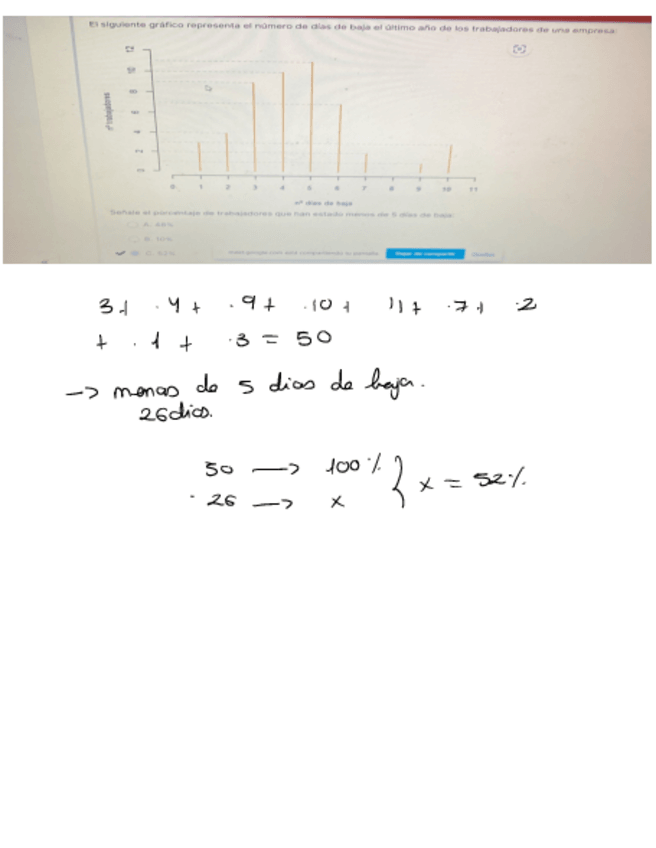 El siguiente gráfico representa el número de días de baja el último año de los trabajadores de una empresa:
12
10
8
6
4
2
0
nº trabajadores
0 1 2 3 4 5 6 7 8 9 10 11
nº días de baja
Señale el porcentaje de trabajadores que han estado menos de 5 días de baja:
A. 48%
B. 10%
C. 52%
3+ 4+ 9+ 10+ 11+ 7+ 2
+ 1 + 3 = 50
→ menos de 5 dias de baja.
26 dias.
50 → 100% } x = 52%
26 → x